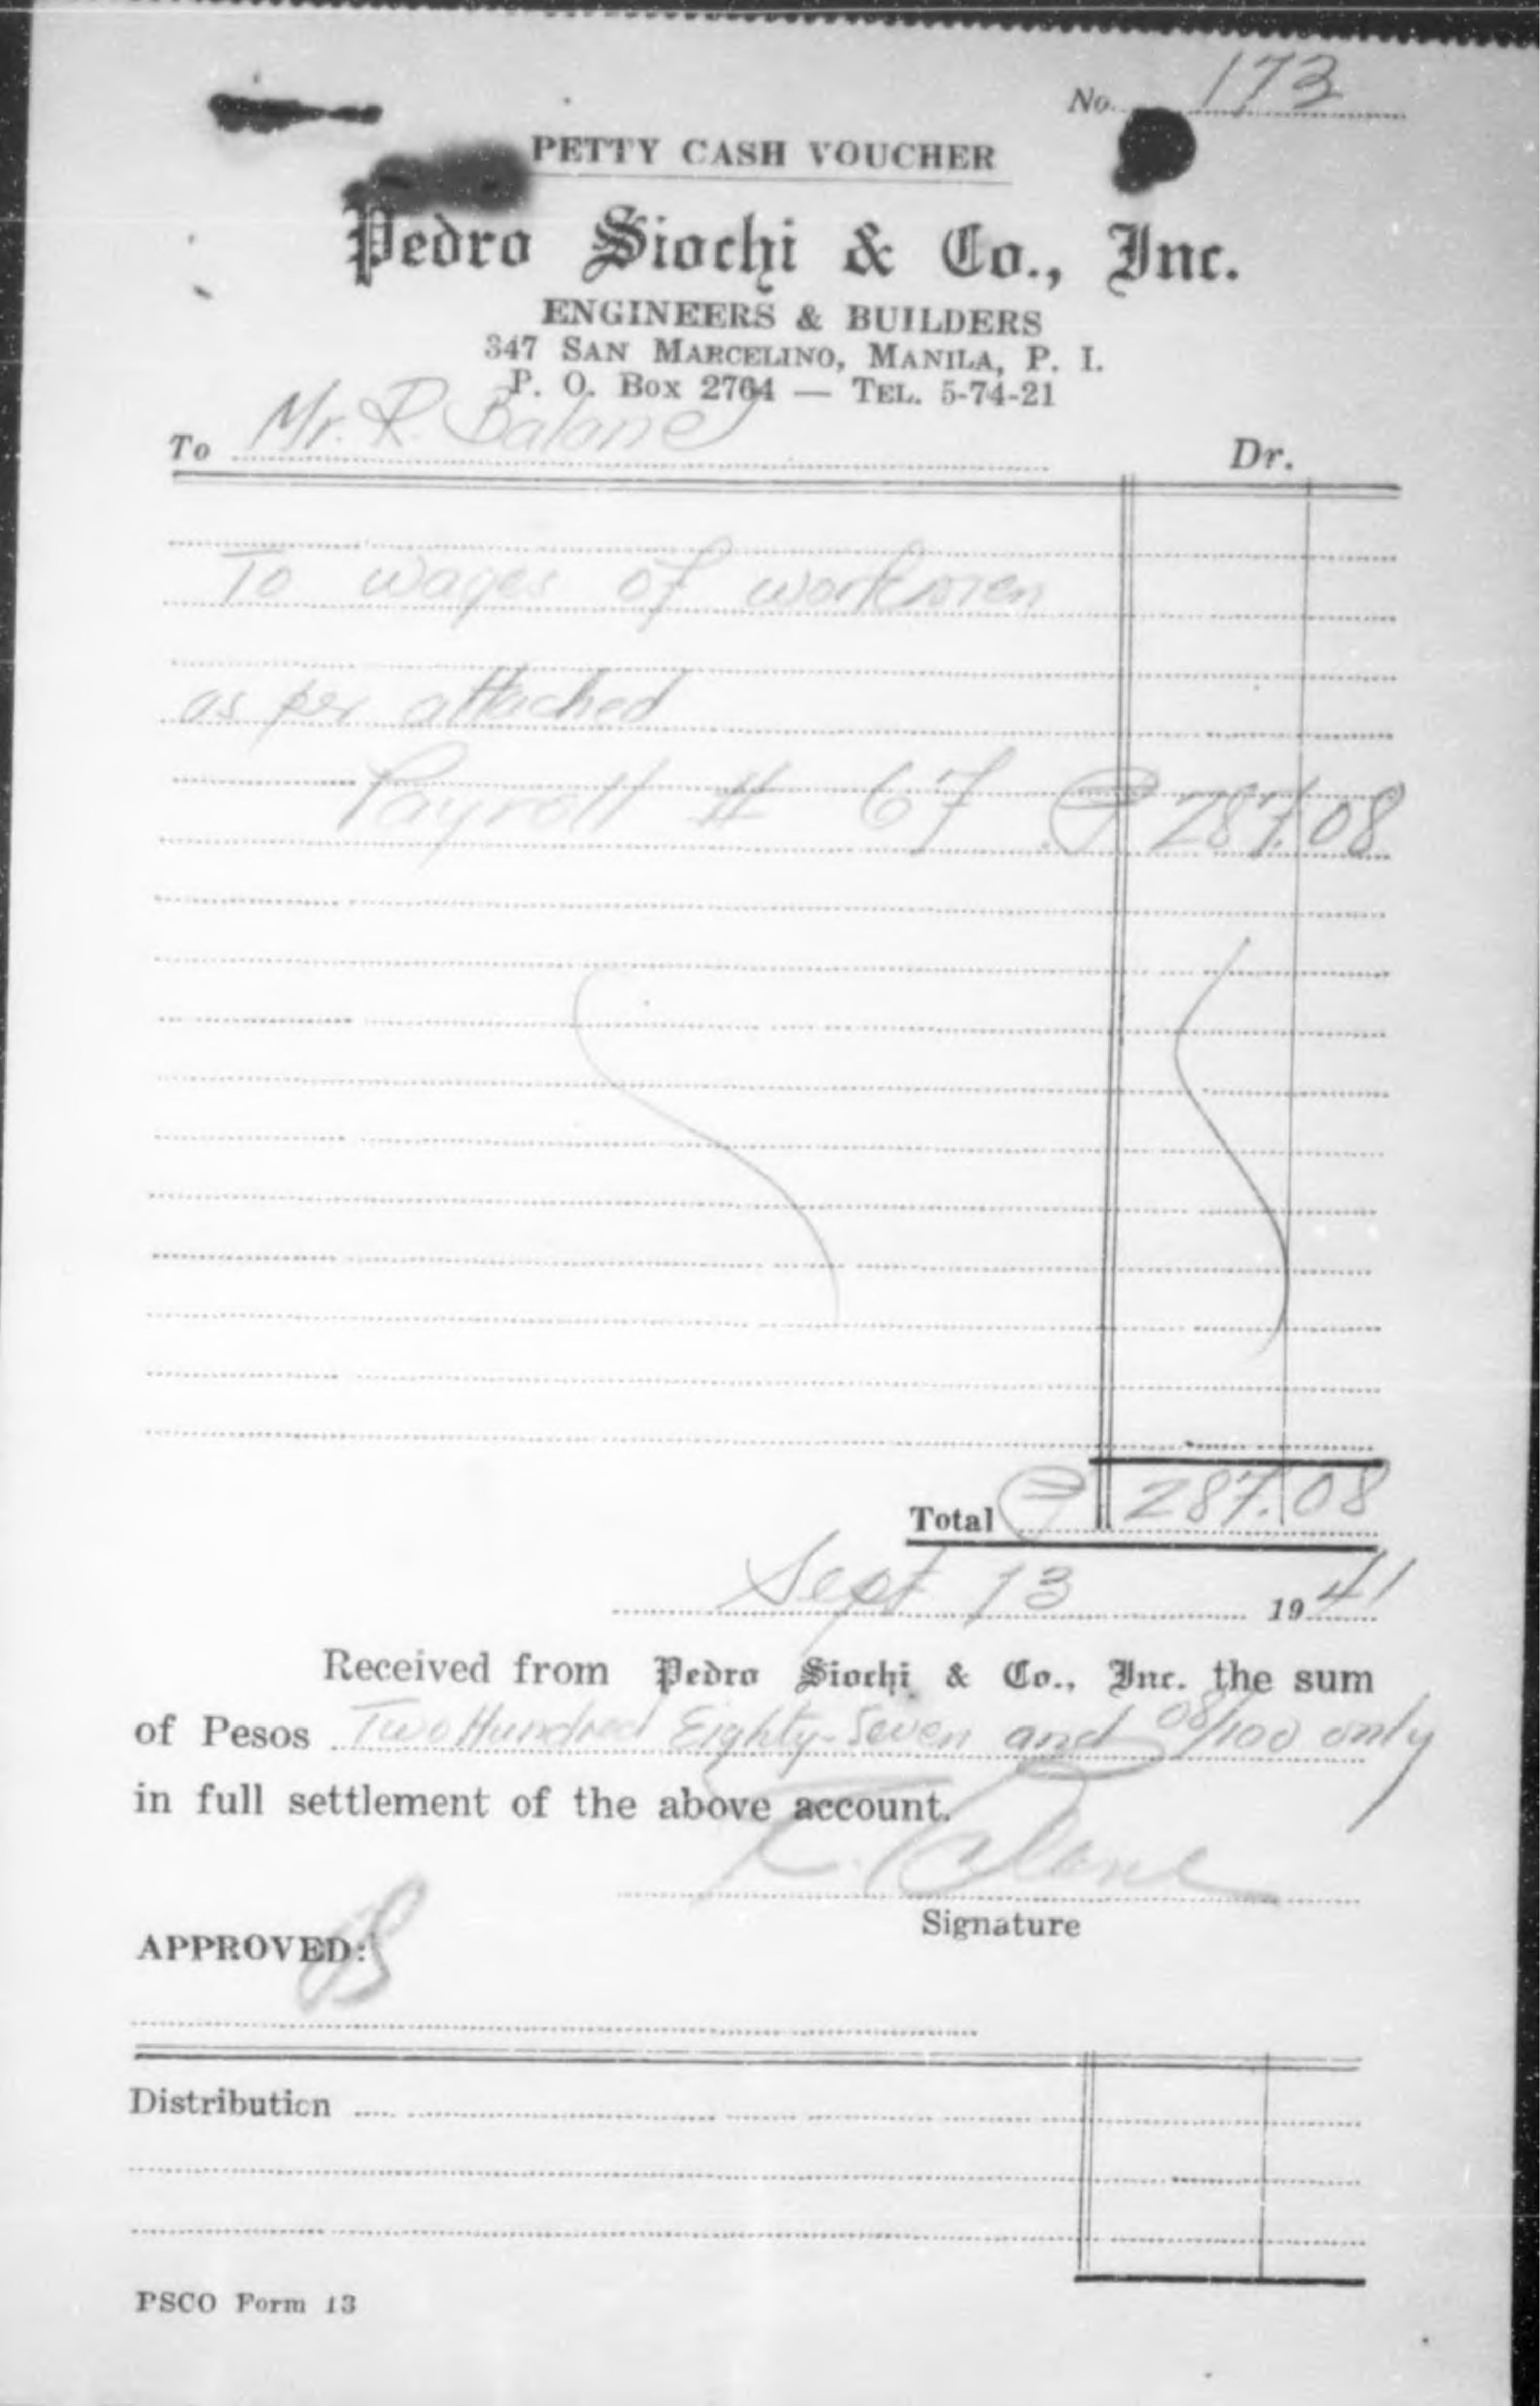 No. 173
PETTY CASH VOUCHER
Pedro Siochi & Co., Inc.
ENGINEERS & BUILDERS
347 SAN MARCELINO, MANILA, P. I.
P. O. Box 2764 — TEL. 5-74-21
To Mr. R. Balane Dr.
To wages of workmen
as per attached
Payroll # 67 ₱ 287.08
Total ₱ 287.08
Sept 13 1941
Received from Pedro Siochi & Co., Inc. the sum
of Pesos Two Hundred Eighty-Seven and 08/100 only
in full settlement of the above account.
R. Balane
Signature
APPROVED:
Distribution
PSCO Form 13